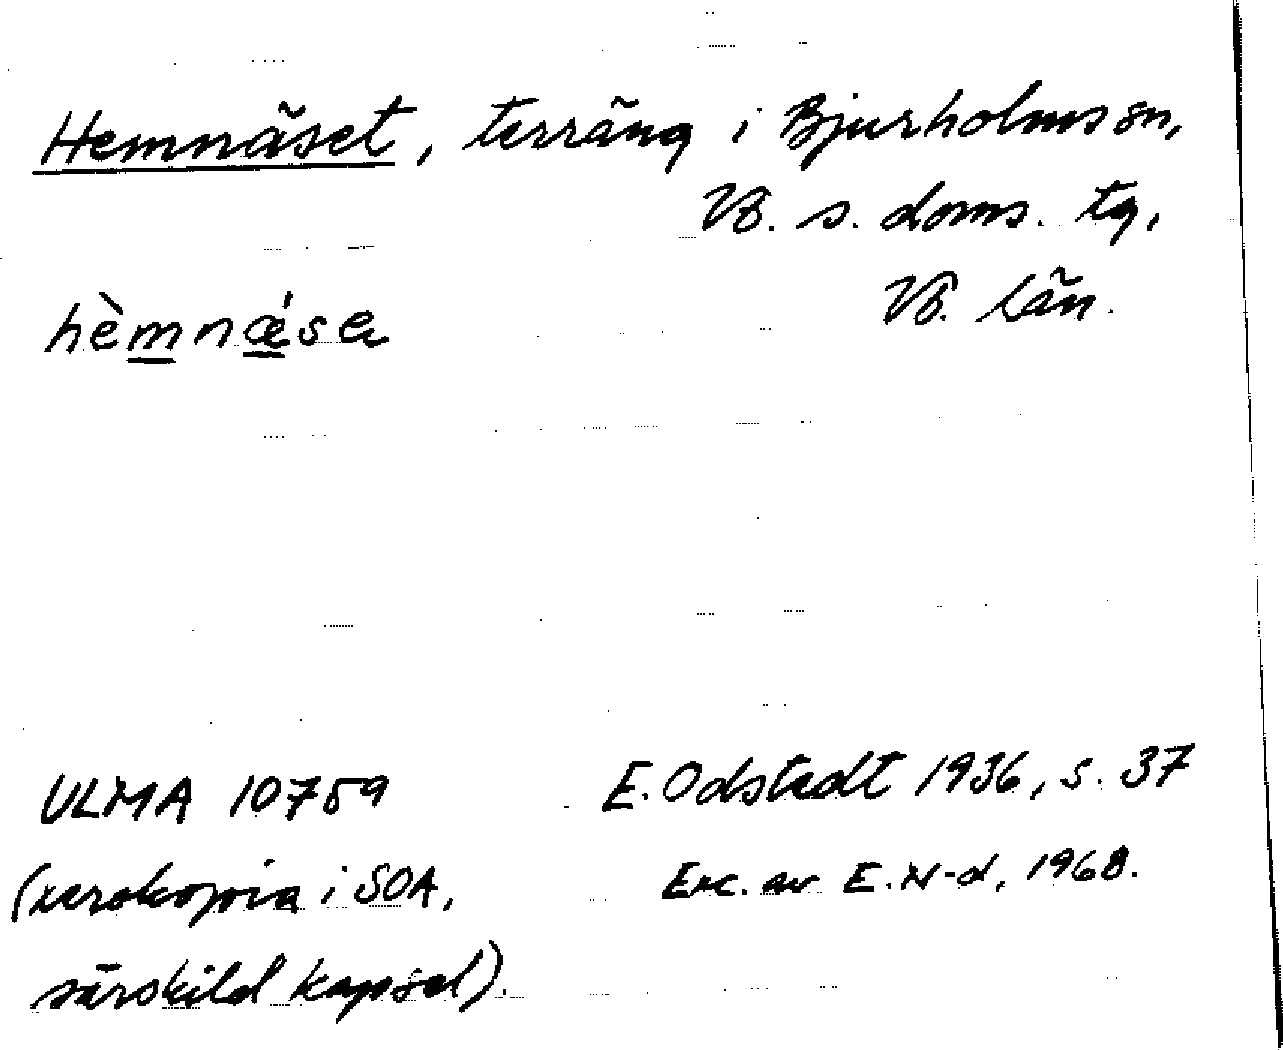 Hemnäset, terräng i Bjurholms sn,
Vb. s. doms. tg,
Vb. län.
hèmnǽsa
ULMA 10759
E. Odstedt 1936, s. 37
(xerokopia i SOA,
Exc. av E. W-d, 1968.
särskild kapsel).